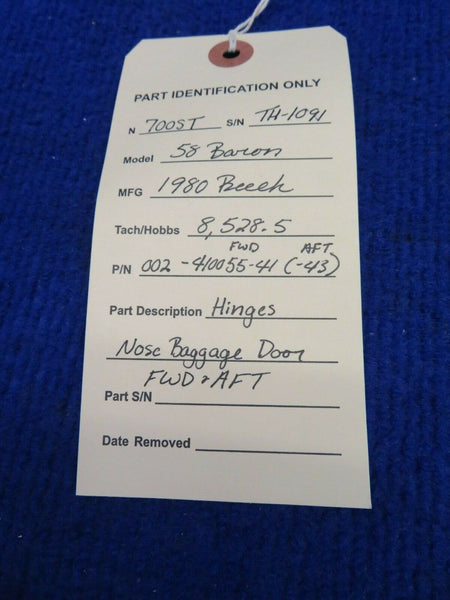 PART IDENTIFICATION ONLY
N 700ST S/N TH-1091
Model 58 Baron
MFG 1980 Beech
Tach/Hobbs 8,528.5
FWD AFT
P/N 002-410055-41 (-43)
Part Description Hinges
Nose Baggage Door
FWD & AFT
Part S/N
Date Removed